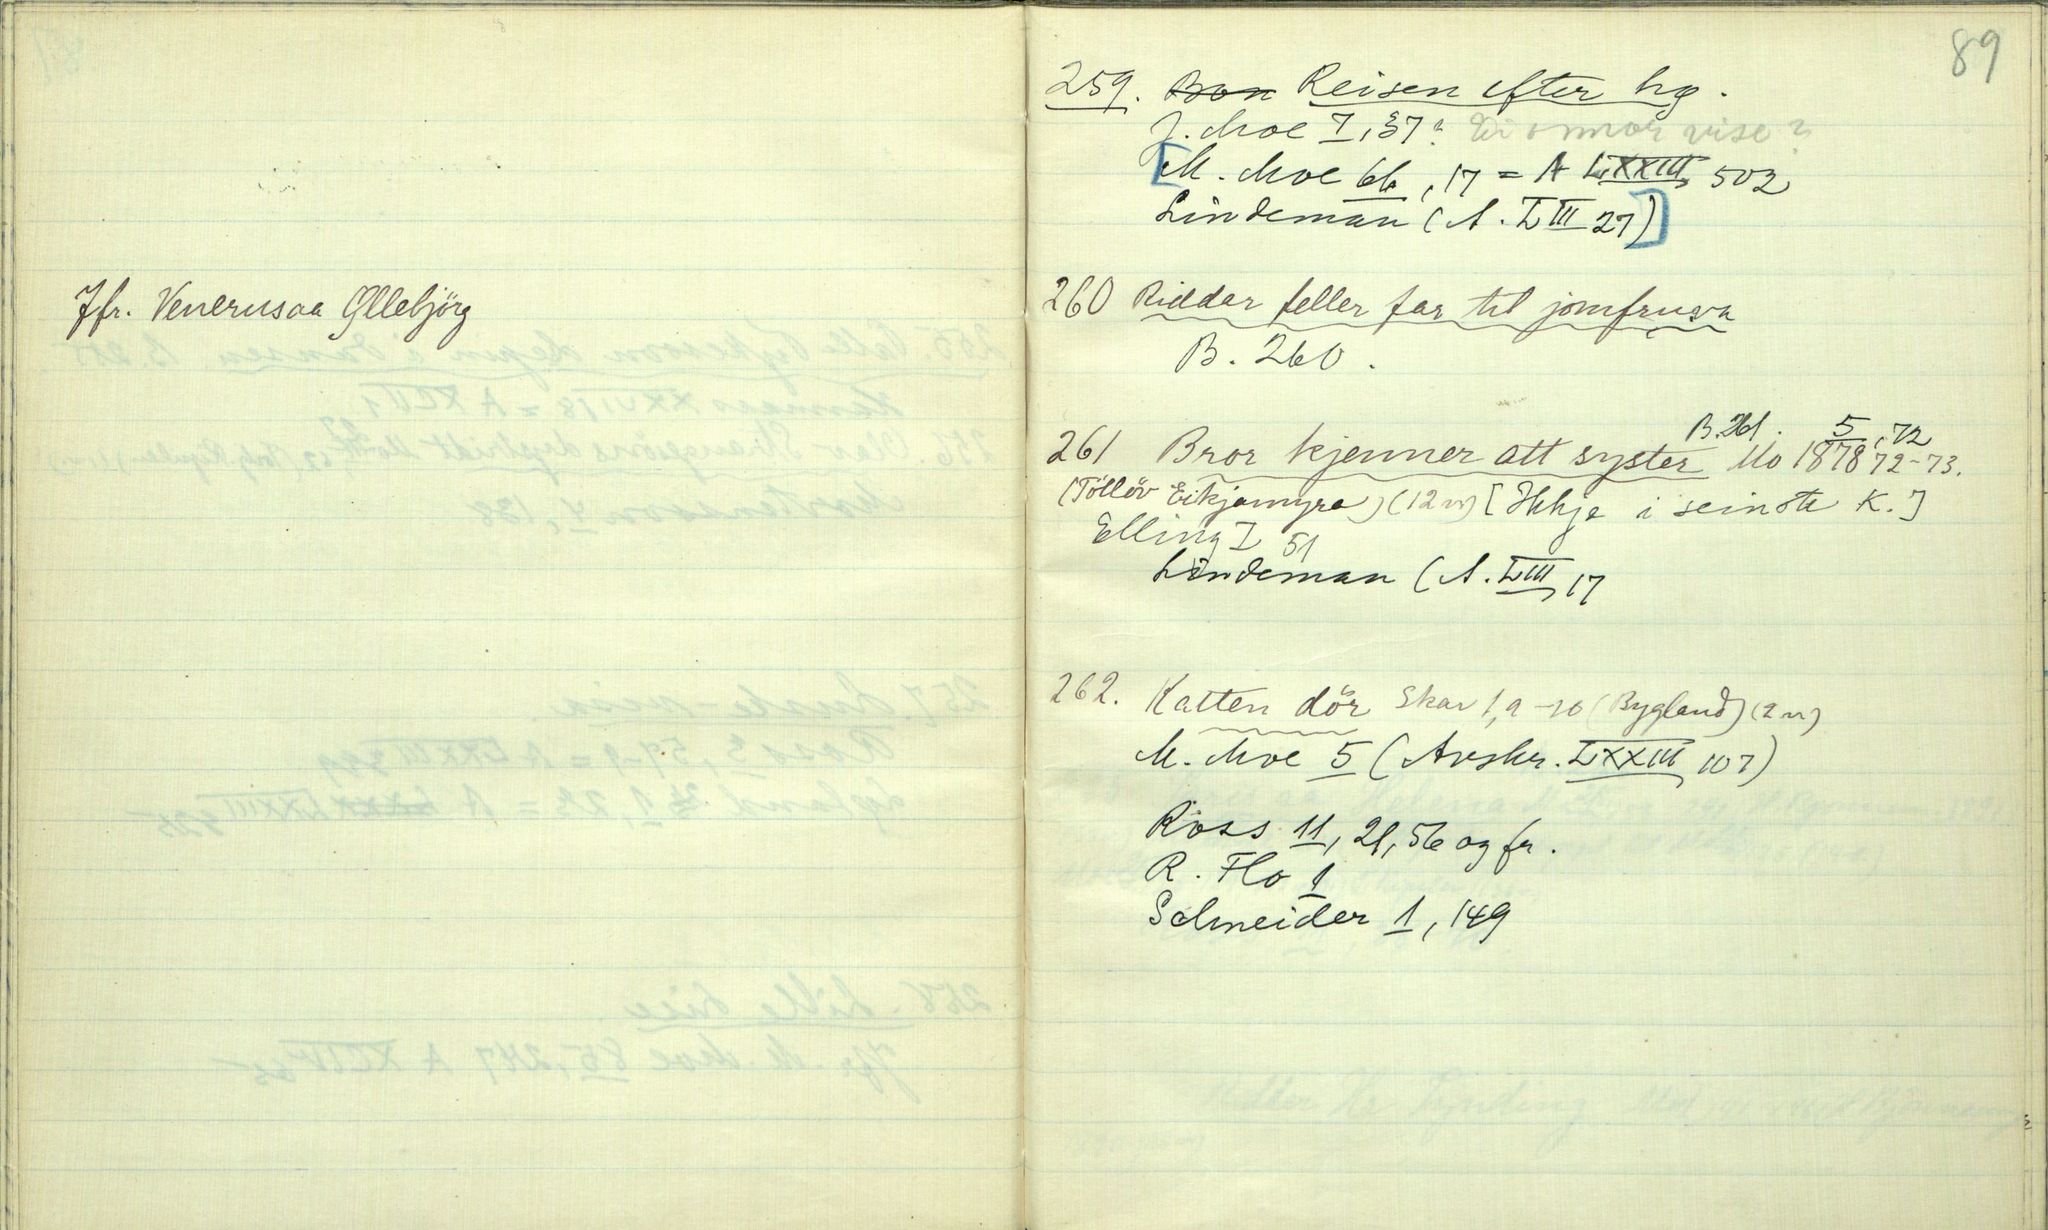 Jfr. Venerusaa Øllebjörg
89
259. Bon Reisen efter hg.
J. Moe I, 37? vise?
[M. Moe 66, 17 = A LXXIII, 502
Lindeman (A. LIII 27)]
260 Riddar feller far til jomfruva
B. 260.
B. 261. 5, 72
261 Bror kjenner att syster Mo 1878 72-73.
(Töllöv Eikjamyra) (12 v) [Ikkje i seinste K.]
Elling I 51
Lindeman (A. LIII, 17
262. Katten dör Skar 1, 9-10 (Bygland) (2 v)
M. Moe 5 (Avskr. LXXIII 107)
Ross 11, 21, 56 og fr.
R. Flo 1
Schneider 1, 149